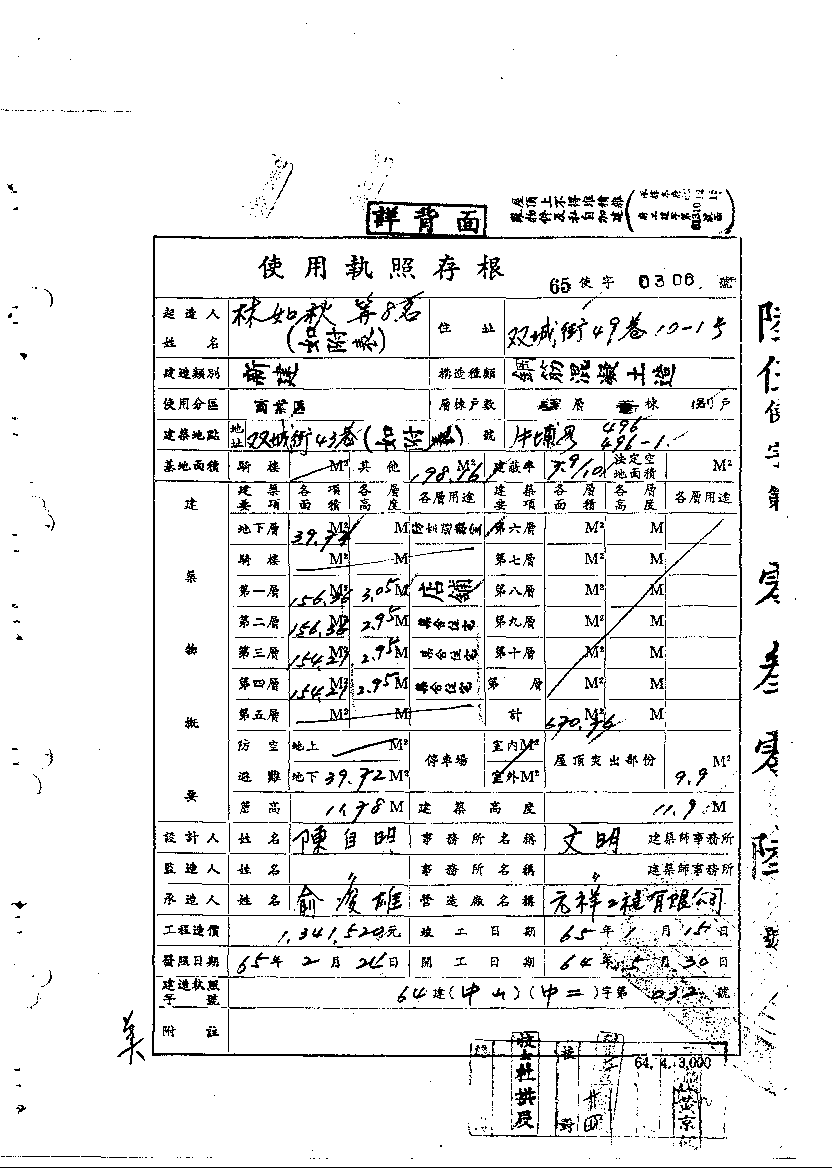 詳背面
屋頂上不得堆積雜
物件及私自加建
使用執照存根
65 使字 0306 號
起造人姓名 林如秋 等8名 (如附表) 住址 双城街49巷10-1号
建造類別 新建 構造種類 鋼筋混凝土造
使用分區 商業區 層棟戶數 層 棟 戶
建築地點 地址 双城街43巷(如附表) 號 496 496-1
基地面積 騎樓 M² 其他 198.16 M² 建蔽率 7.9/10 法定空地面積 M²
建築物概要
建築要項 各項面積 各層高度 各層用途 建築要項 各層面積 各層高度 各層用途
地下層 39.72 M² M 第六層 M² M
騎樓 M² M 第七層 M² M
第一層 156.38 M² 3.05 M 店鋪 第八層 M² M
第二層 156.38 M² 2.95 M 集合住宅 第九層 M² M
第三層 154.29 M² 2.95 M 集合住宅 第十層 M² M
第四層 154.29 M² 2.95 M 集合住宅 第 層 M² M
第五層 M² M 計 M² M
防空避難 地上 M² 停車場 室內 M² 屋頂突出部份 M²
地下 39.72 M² 室外 M² 9.9
簷高 11.78 M 建築高度 11.9 M
設計人 姓名 陳自明 事務所名稱 文明 建築師事務所
監造人 姓名 〃 事務所名稱 〃 建築師事務所
承造人 姓名 俞俊雄 營造廠名稱 元祥工程有限公司
工程造價 1,341,520元 竣工日期 65年1月15日
發照日期 65年2月24日 開工日期 64年5月30日
建造執照字號 64建(中山)(中二)字第032號
附註
64. 4. 3,000
校對
陸伍使字第零叁零陸號
美